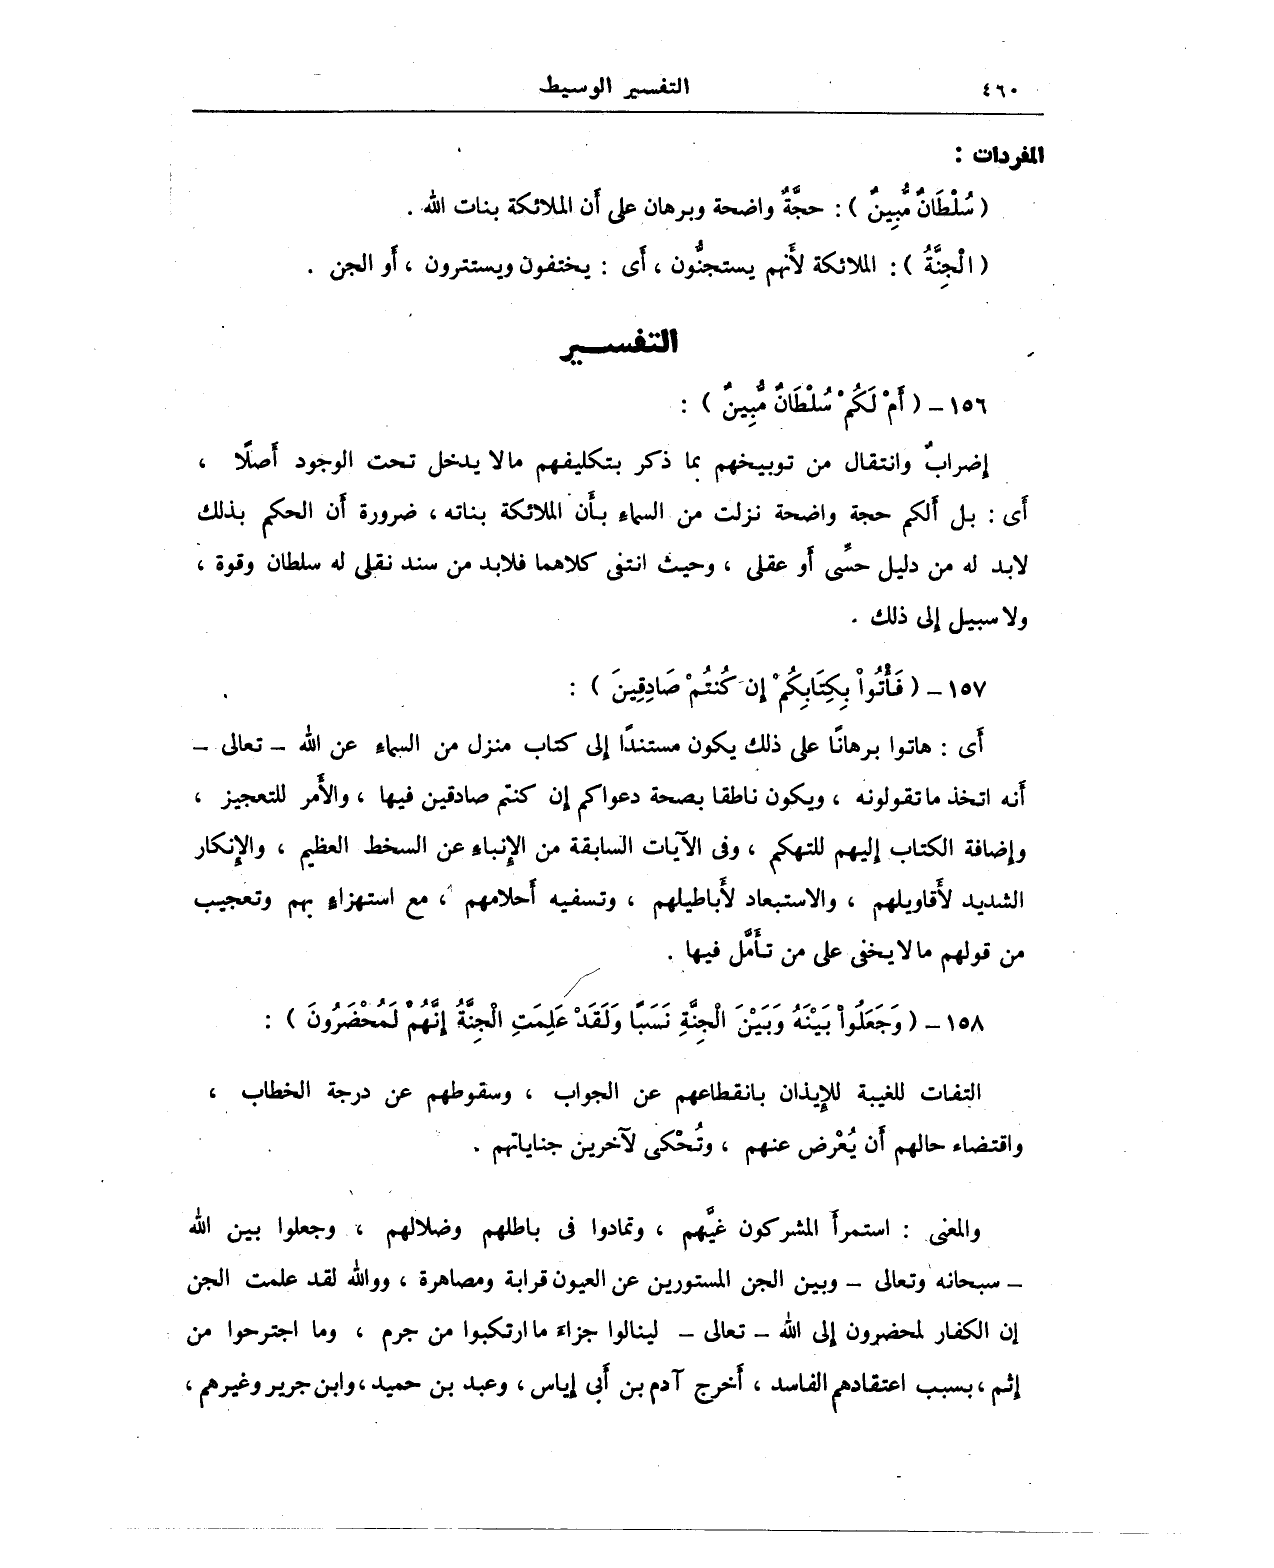 ٤٦٠ التفسير الوسيط
المفردات :
( سُلْطَانٌ مُّبِينٌ ) : حجَّةٌ واضحة وبرهان على أَن الملائكة بنات الله .
( الْجِنَّةُ ) : الملائكة لأَنهم يستجنُّون ، أَى : يختفون ويستترون ، أَو الجن .
التفسير
١٥٦ – ( أَمْ لَكُمْ سُلْطَانٌ مُّبِينٌ ) :
إضرابٌ وانتقال من توبيخهم بما ذكر بتكليفهم مالا يدخل تحت الوجود أَصلًا ،
أَى : بل أَلكم حجة واضحة نزلت من السماءِ بأَن الملائكة بناته ، ضرورة أَن الحكم بذلك
لابد له من دليل حسِّى أَو عقلى ، وحيث انتفى كلاهما فلابد من سند نقلى له سلطان وقوة ،
ولا سبيل إلى ذلك .
١٥٧ – ( فَأْتُواْ بِكِتَابِكُمْ إِن كُنتُمْ صَادِقِينَ ) :
أَى : هاتوا برهانًا على ذلك يكون مستندًا إلى كتاب منزل من السماءِ عن الله – تعالى –
أَنه اتخذ ما تقولونه ، ويكون ناطقا بصحة دعواكم إن كنتم صادقين فيها ، والأَمر للتعجيز ،
وإضافة الكتاب إليهم للتهكم ، وفى الآيات السابقة من الإِنباءِ عن السخط العظيم ، والإِنكار
الشديد لأَقاويلهم ، والاستبعاد لأَباطيلهم ، وتسفيه أَحلامهم ، مع استهزاءٍ بهم وتعجيب
من قولهم مالا يخفى على من تأَمَّل فيها .
١٥٨ – ( وَجَعَلُواْ بَيْنَهُ وَبَيْنَ الْجِنَّةِ نَسَبًا وَلَقَدْ عَلِمَتِ الْجِنَّةُ إِنَّهُمْ لَمُحْضَرُونَ ) :
التفات للغيبة للإِيذان بانقطاعهم عن الجواب ، وسقوطهم عن درجة الخطاب ،
واقتضاء حالهم أَن يُعْرض عنهم ، وتُحْكى لآخرين جناياتهم .
والمعنى : استمرأَ المشركون غيَّهم ، وتمادوا فى باطلهم وضلالهم ، وجعلوا بين الله
– سبحانه وتعالى – وبين الجن المستورين عن العيون قرابة ومصاهرة ، ووالله لقد علمت الجن
إن الكفار لمحضرون إلى الله – تعالى – لينالوا جزاءَ ما ارتكبوا من جرم ، وما اجترحوا من
إثم ، بسبب اعتقادهم الفاسد ، أَخرج آدم بن أَبى إياس ، وعبد بن حميد ، وابن جرير وغيرهم ،